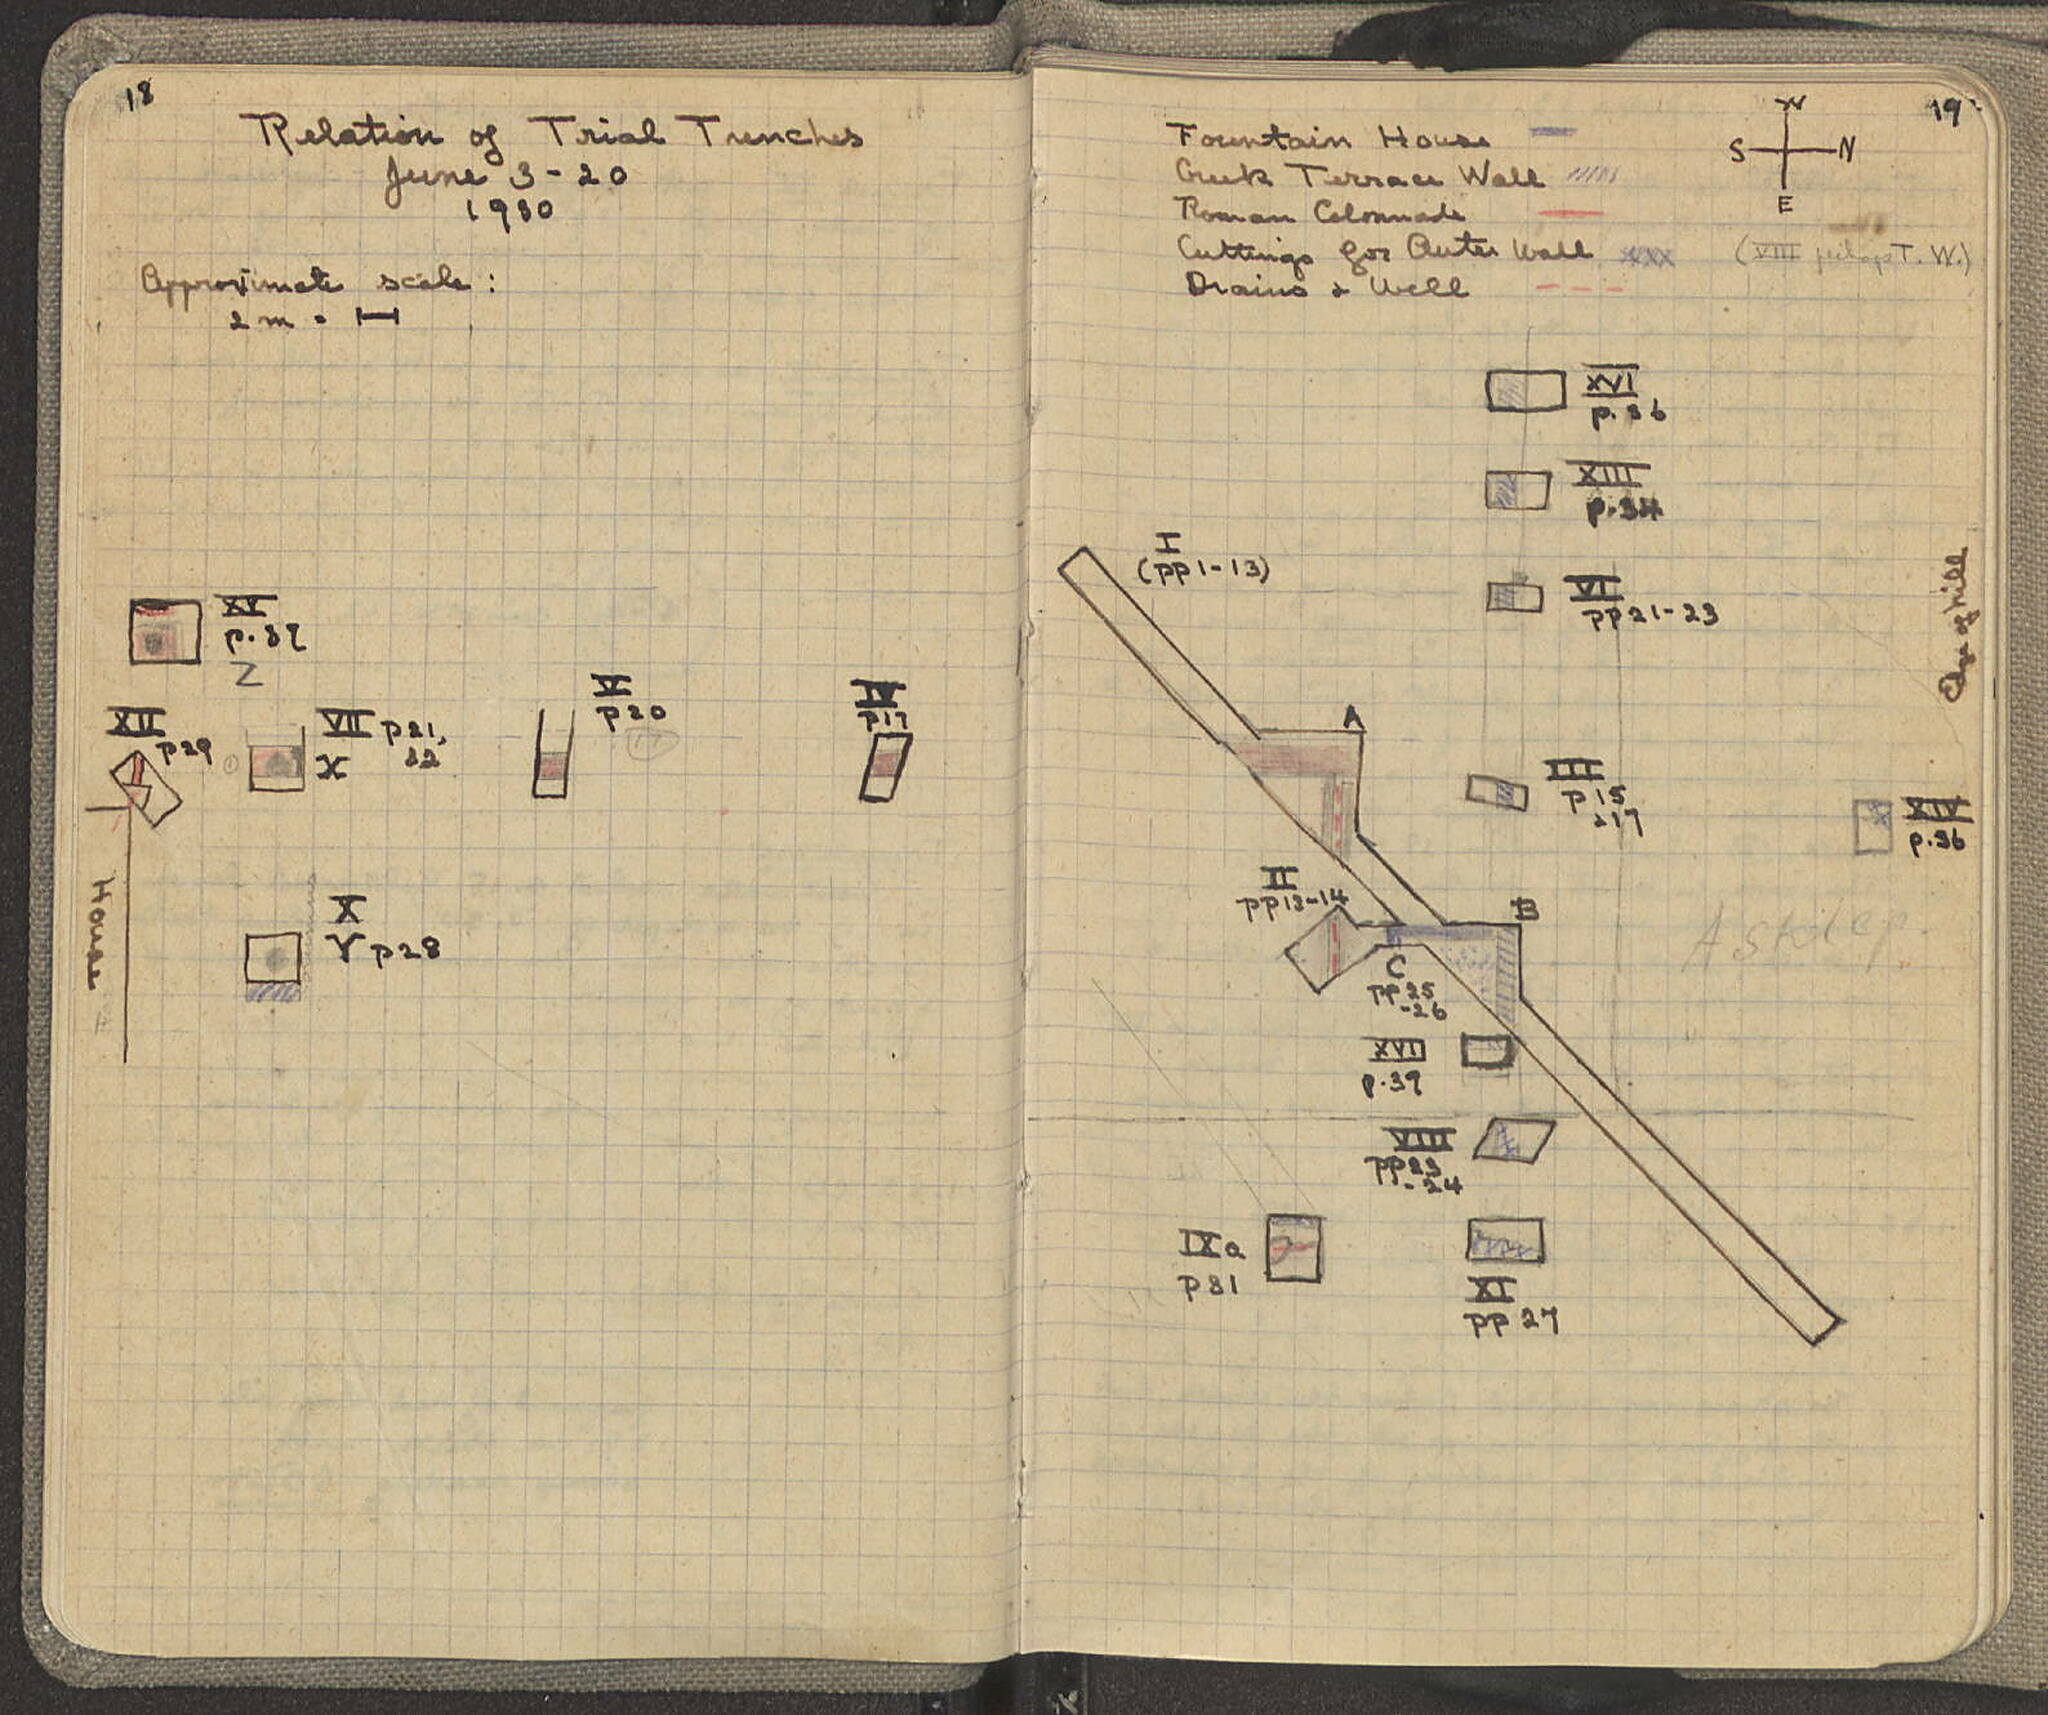 18
Relation of Trial Trenches
June 3-20
1930
Approximate scale:
2 m =
XV
p.37
Z
XII
p29
VII p21,
X 22
V
p20
IV
p17
House
X
Y p28
19
Fountain House
Greek Terrace Wall
Roman Colonnade
Cuttings for Outer Wall xxx (VIII perhaps T. W.)
Drains & Well
W
S N
E
XVI
p.36
XIII
p.34
I
(pp 1-13)
VI
pp 21-23
Edge of hill
A
III
p 15
&17
XIV
p.36
II
pp 13-14
B
Asklep.
C
pp 25
-26
XVII
p.39
VIII
pp 23
-24
IXa
p 31
XI
pp 27